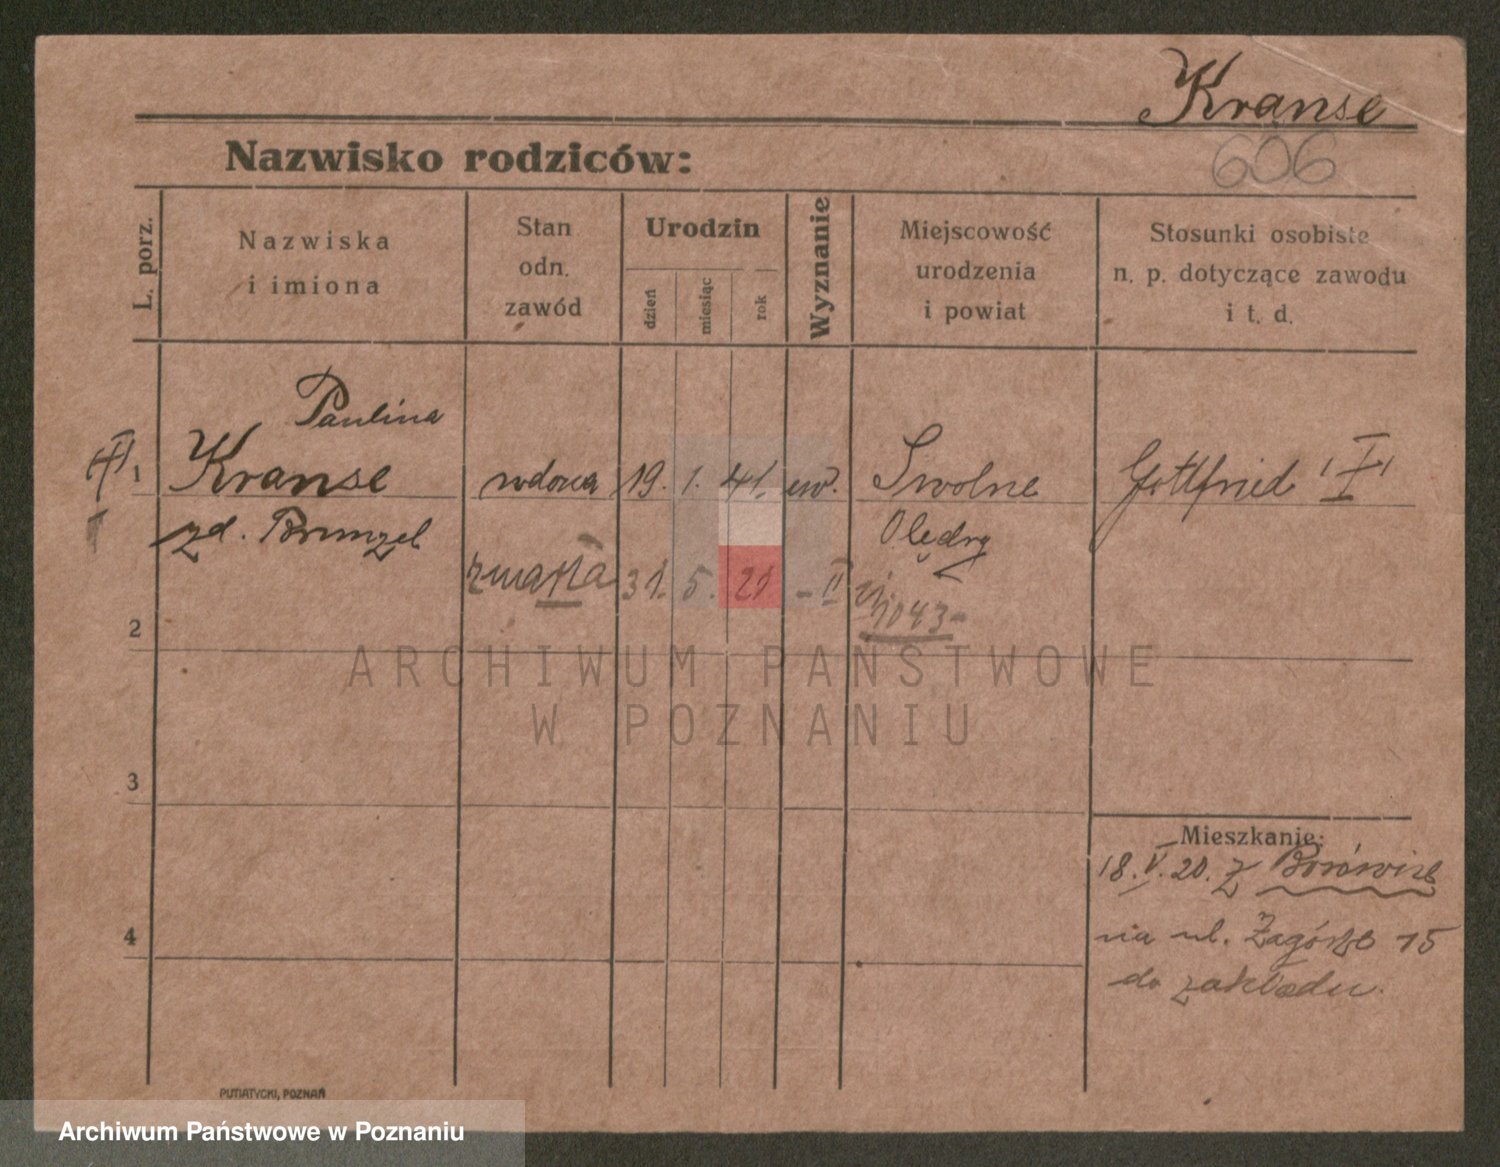 Kranse
606
Nazwisko rodziców:
L. porz.
Nazwiska
i imiona
Stan
odn.
zawód
Urodzin
dzień
miesiąc
rok
Wyznanie
Miejscowość
urodzenia
i powiat
Stosunki osobiste
n. p. dotyczące zawodu
i t. d.
Paulina
1 Kranse wdowa 19. 1. 41. ew. Gottfried
zd.
Olędry
zmarła 31. 5. 21 - II
1043-
2
ARCHIWUM PAŃSTWOWE
W POZNANIU
3
Mieszkanie:
18. V. 20. z
4
na ul. Zagórze 15
do zakładu.
PUTIATYCKI, POZNAŃ
Archiwum Państwowe w Poznaniu